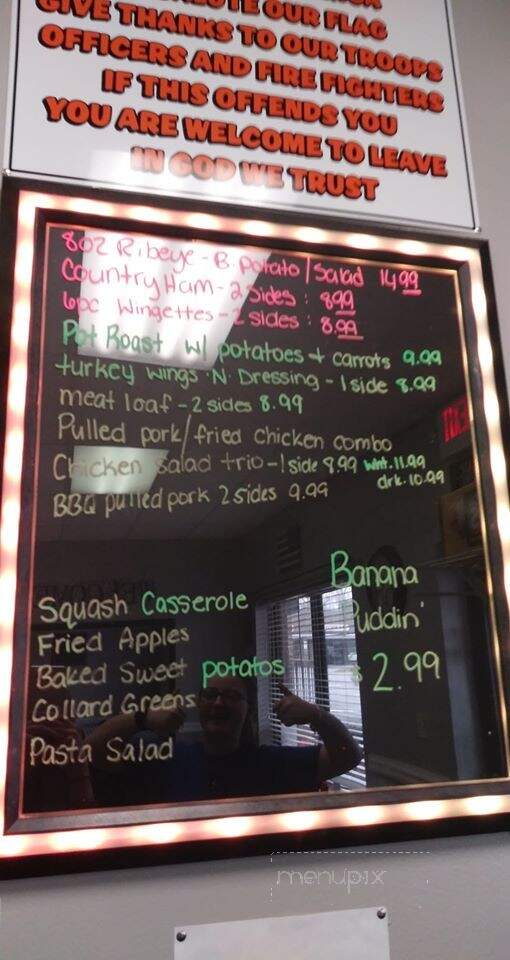 OUR FLAG
GIVE THANKS TO OUR TROOPS
OFFICERS AND FIRE FIGHTERS
IF THIS OFFENDS YOU
YOU ARE WELCOME TO LEAVE
IN GOD WE TRUST
8oz Ribeye - B. potato / Salad 14.99
Country Ham - 2 Sides : 8.99
6pc Wingettes - 2 sides : 8.99
Pot Roast w/ potatoes + carrots 9.99
turkey wings 'N' Dressing - 1 side 8.99
meat loaf - 2 sides 8.99
Pulled pork/fried chicken combo
Chicken Salad trio - 1 side 8.99 wht. 11.99
drk. 10.99
BBQ pulled pork 2 sides 9.99
Banana
Puddin'
$2.99
Squash Casserole
Fried Apples
Baked Sweet potatos
Collard Greens
Pasta Salad
menupix